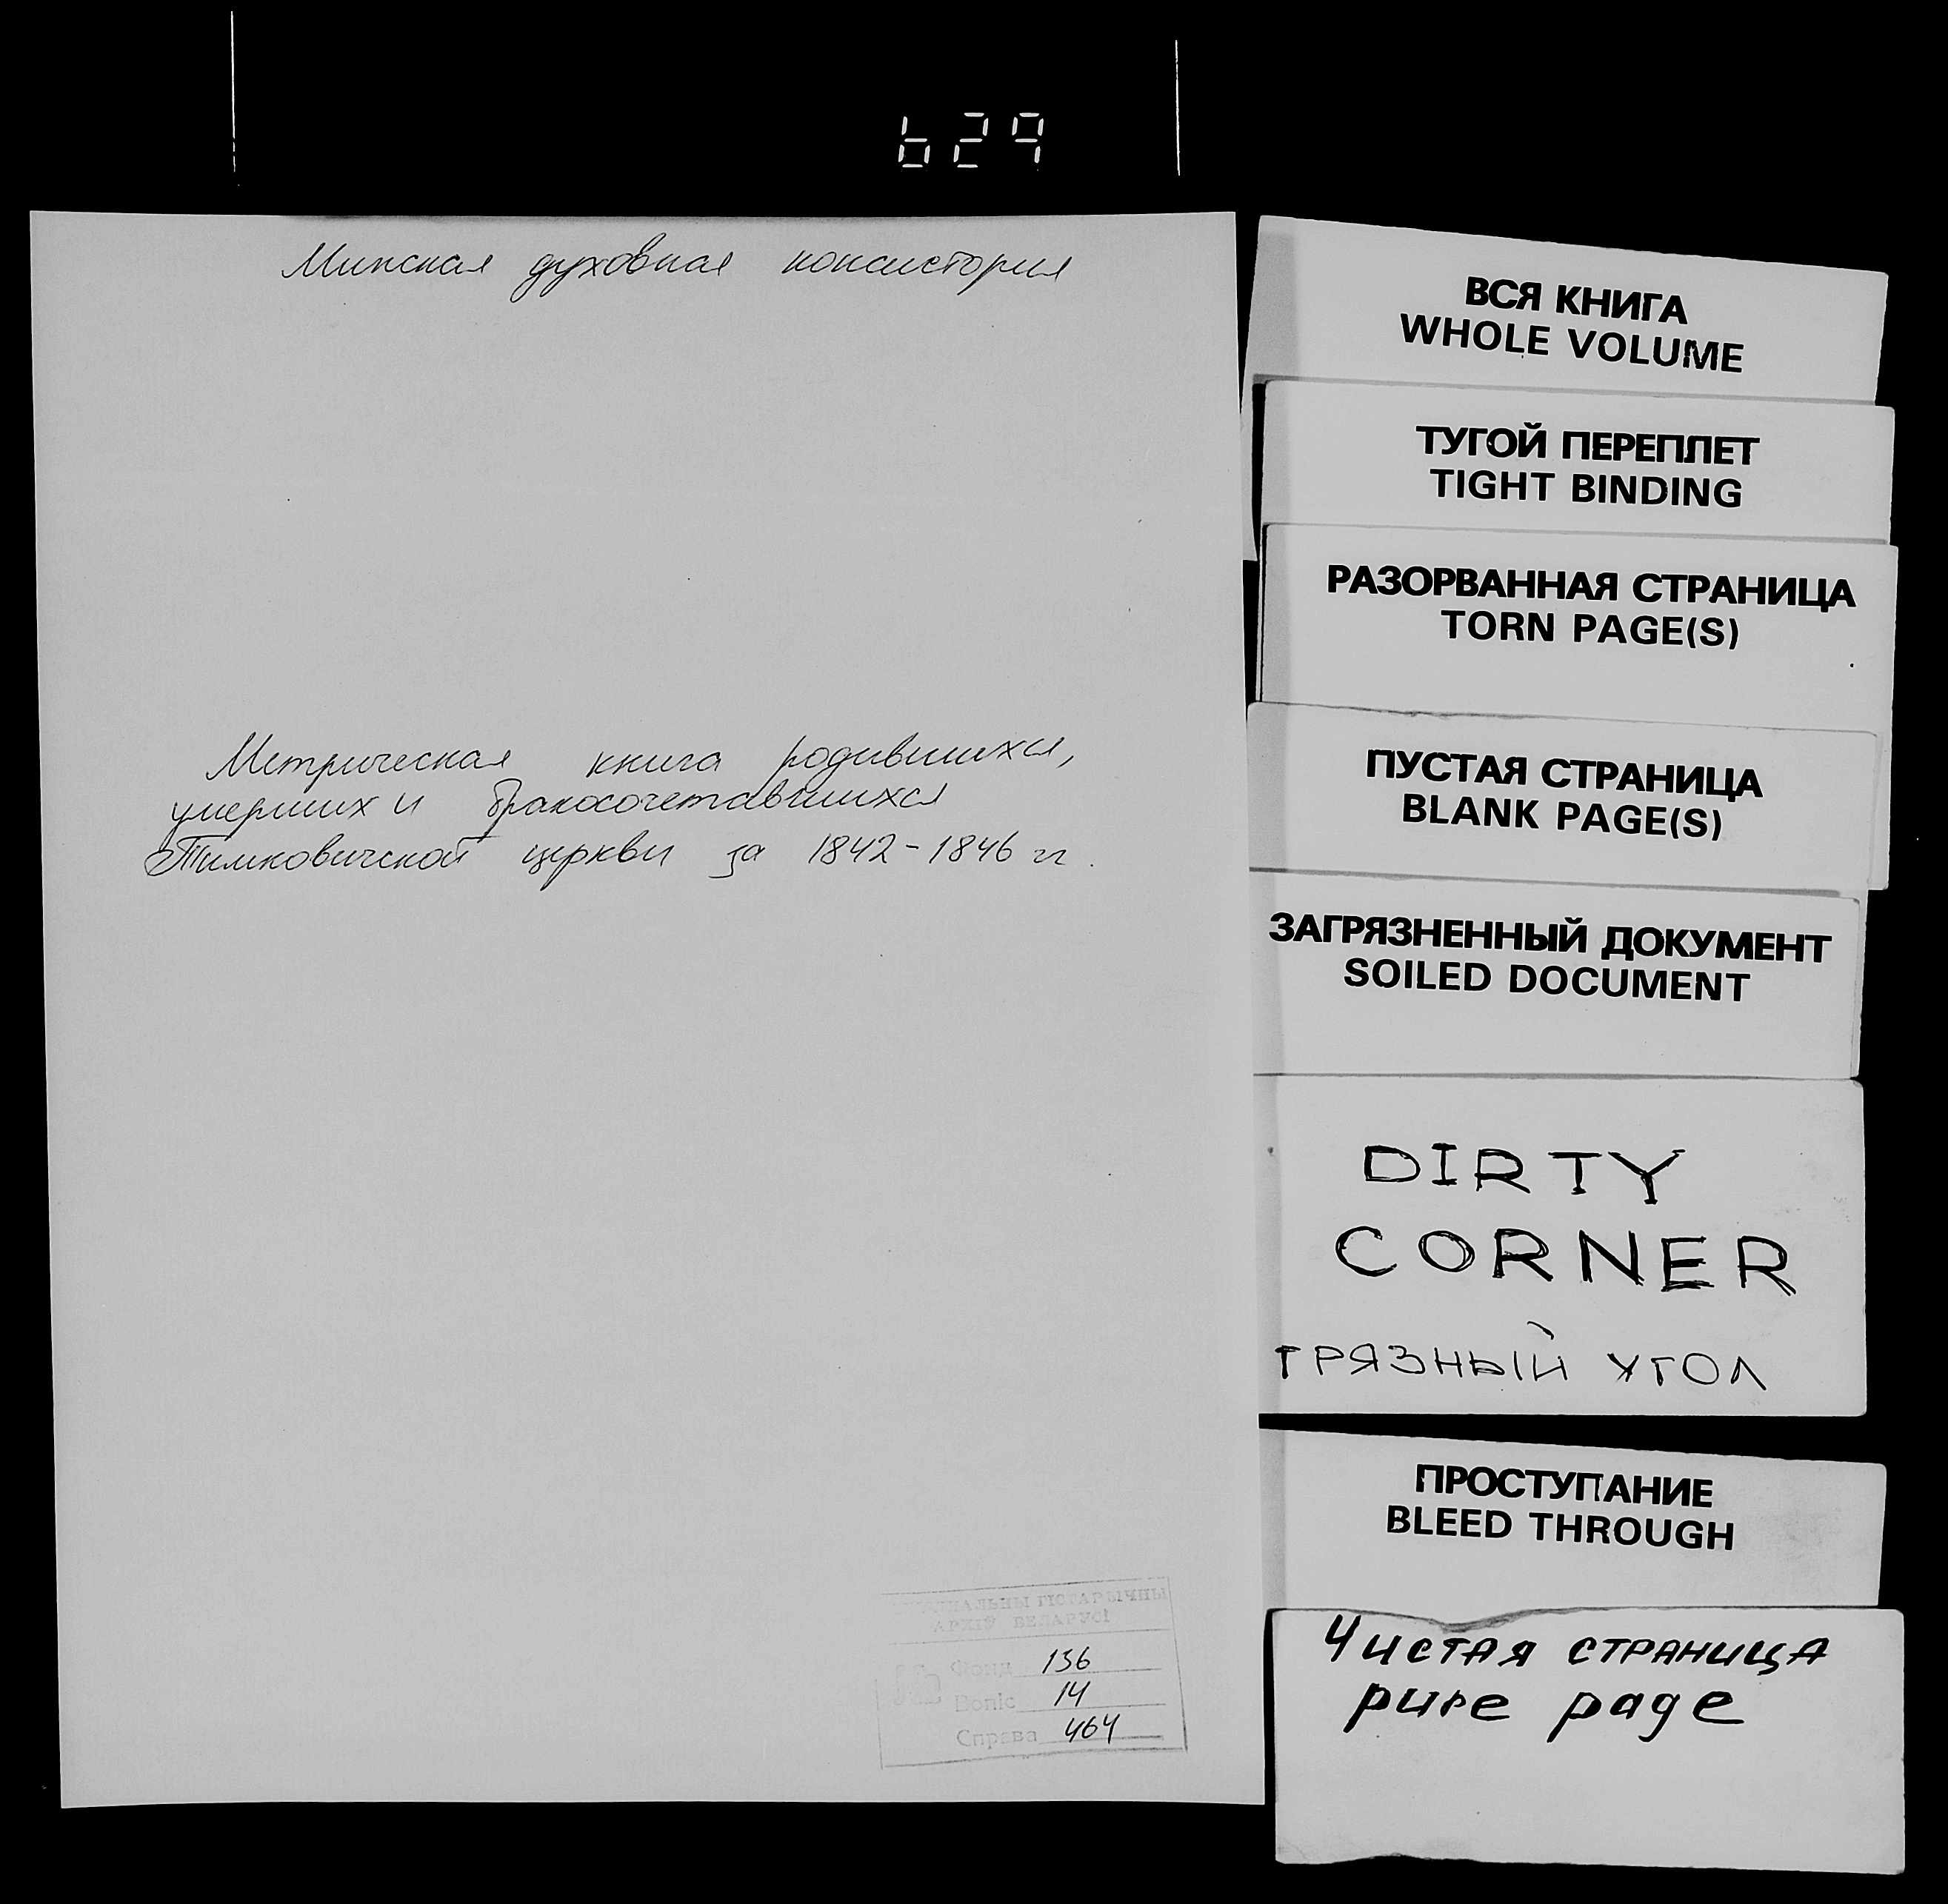 629
Минская духовная консистория
Метрическая книга родившихся,
умерших и бракосочетавшихся
Тимковичской церкви за 1842-1846 гг.
ГІСТАРЫЧНЫ
АРХІЎ БЕЛАРУСІ
Фонд 136
Вопіс 14
Справа 464
ВСЯ КНИГА
WHOLE VOLUME
ТУГОЙ ПЕРЕПЛЕТ
TIGHT BINDING
РАЗОРВАННАЯ СТРАНИЦА
TORN PAGE(S)
ПУСТАЯ СТРАНИЦА
BLANK PAGE(S)
ЗАГРЯЗНЕННЫЙ ДОКУМЕНТ
SOILED DOCUMENT
DIRTY
CORNER
ГРЯЗНЫЙ УГОЛ
ПРОСТУПАНИЕ
BLEED THROUGH
Чистая страница
pure page